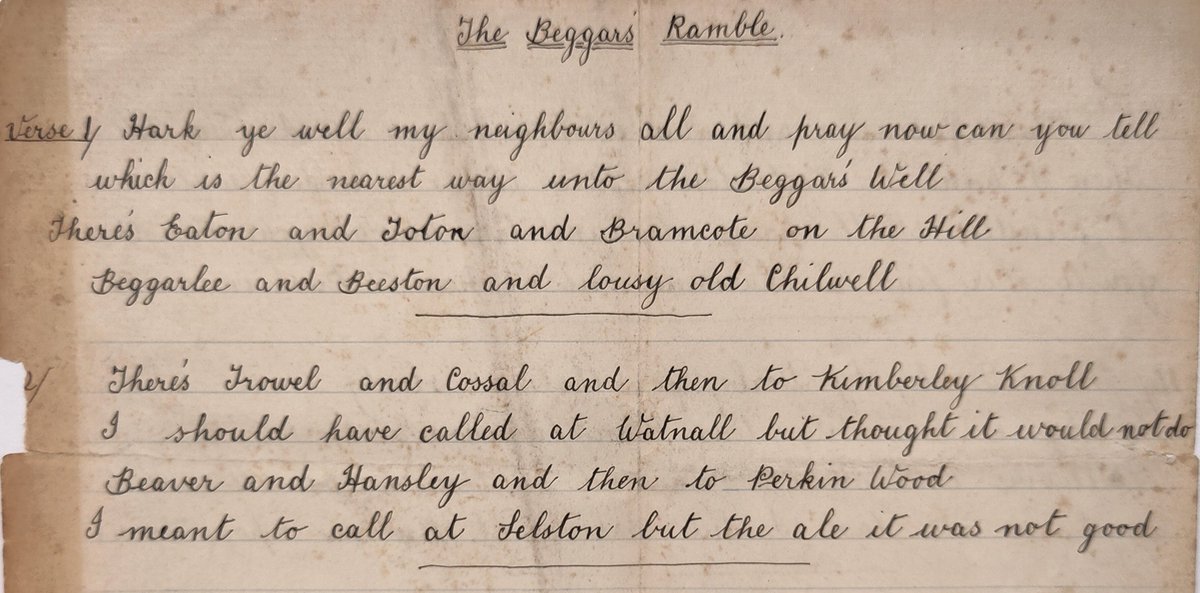 The Beggars' Ramble.
Verse 1/ Hark ye well my neighbours all and pray now can you tell
which is the nearest way unto the Beggar's Well
There's Eaton and Toton and Bramcote on the Hill
Beggarlee and Beeston and lousy old Chilwell
2/ There's Trowel and Cossal and then to Kimberley Knoll
I should have called at Watnall but thought it would not do
Beaver and Hansley and then to Perkin Wood
I meant to call at Selston but the ale it was not good